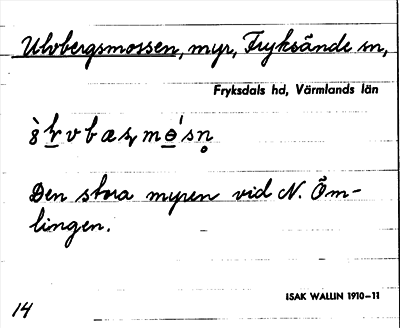 Ulvbergsmossen, myr, Fryksände sn,
Fryksdals hd, Värmlands län
Den stora myren vid N. Öm-
lingen.
ISAK WALLIN 1910–11
14